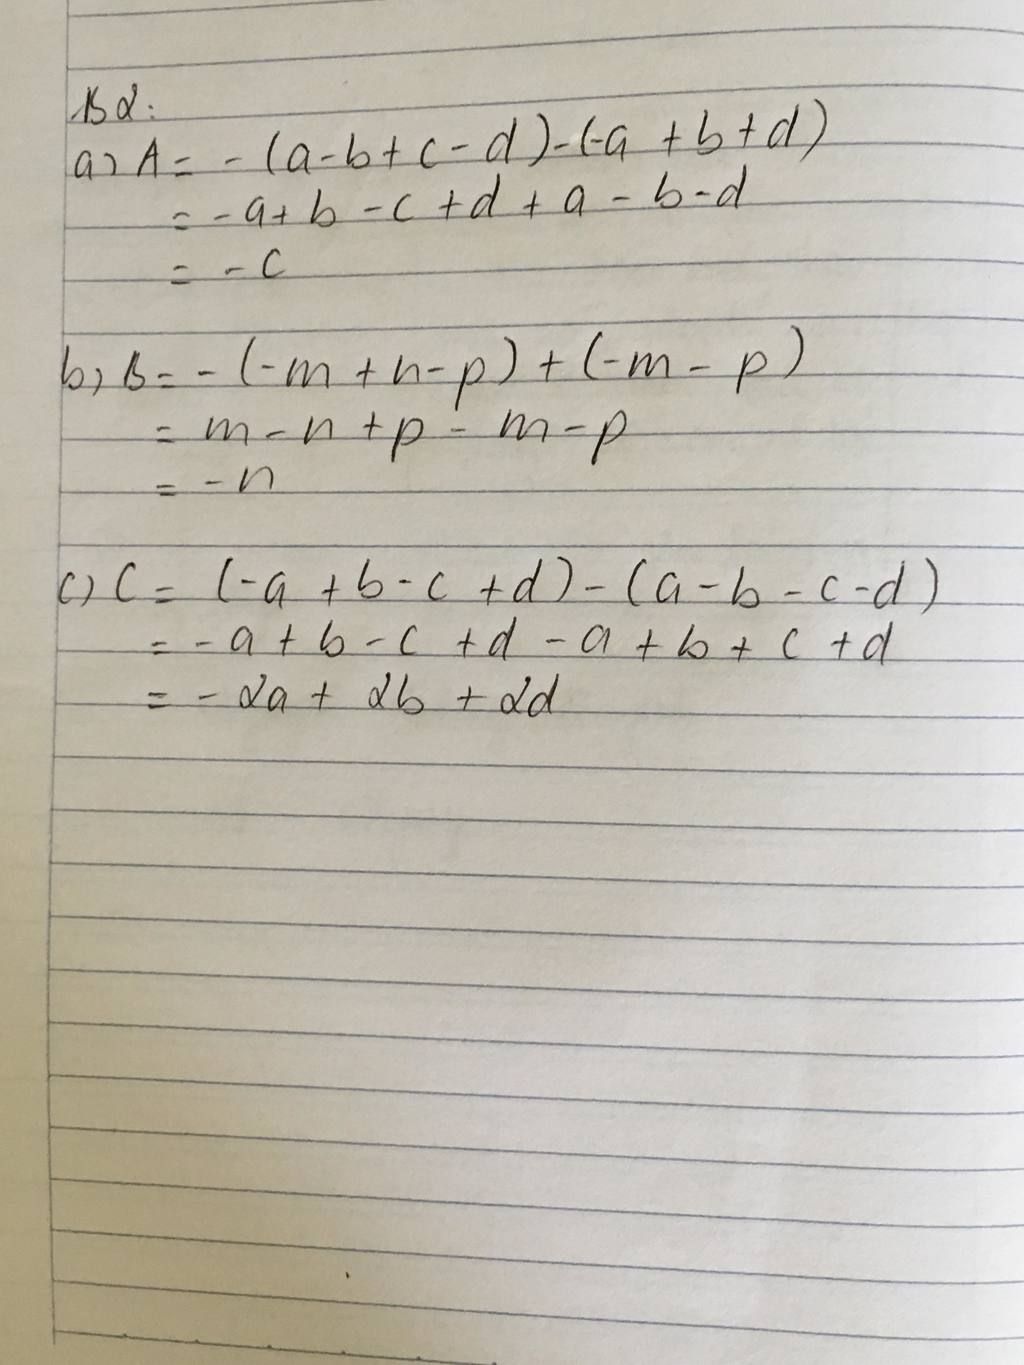 B2:
a) A = -(a-b+c-d)-(-a+b+d)
= -a+b-c+d+a-b-d
= -c
b) B = -(-m+n-p)+(-m-p)
= m-n+p-m-p
= -n
c) C = (-a+b-c+d)-(a-b-c-d)
= -a+b-c+d-a+b+c+d
= -2a+2b+2d